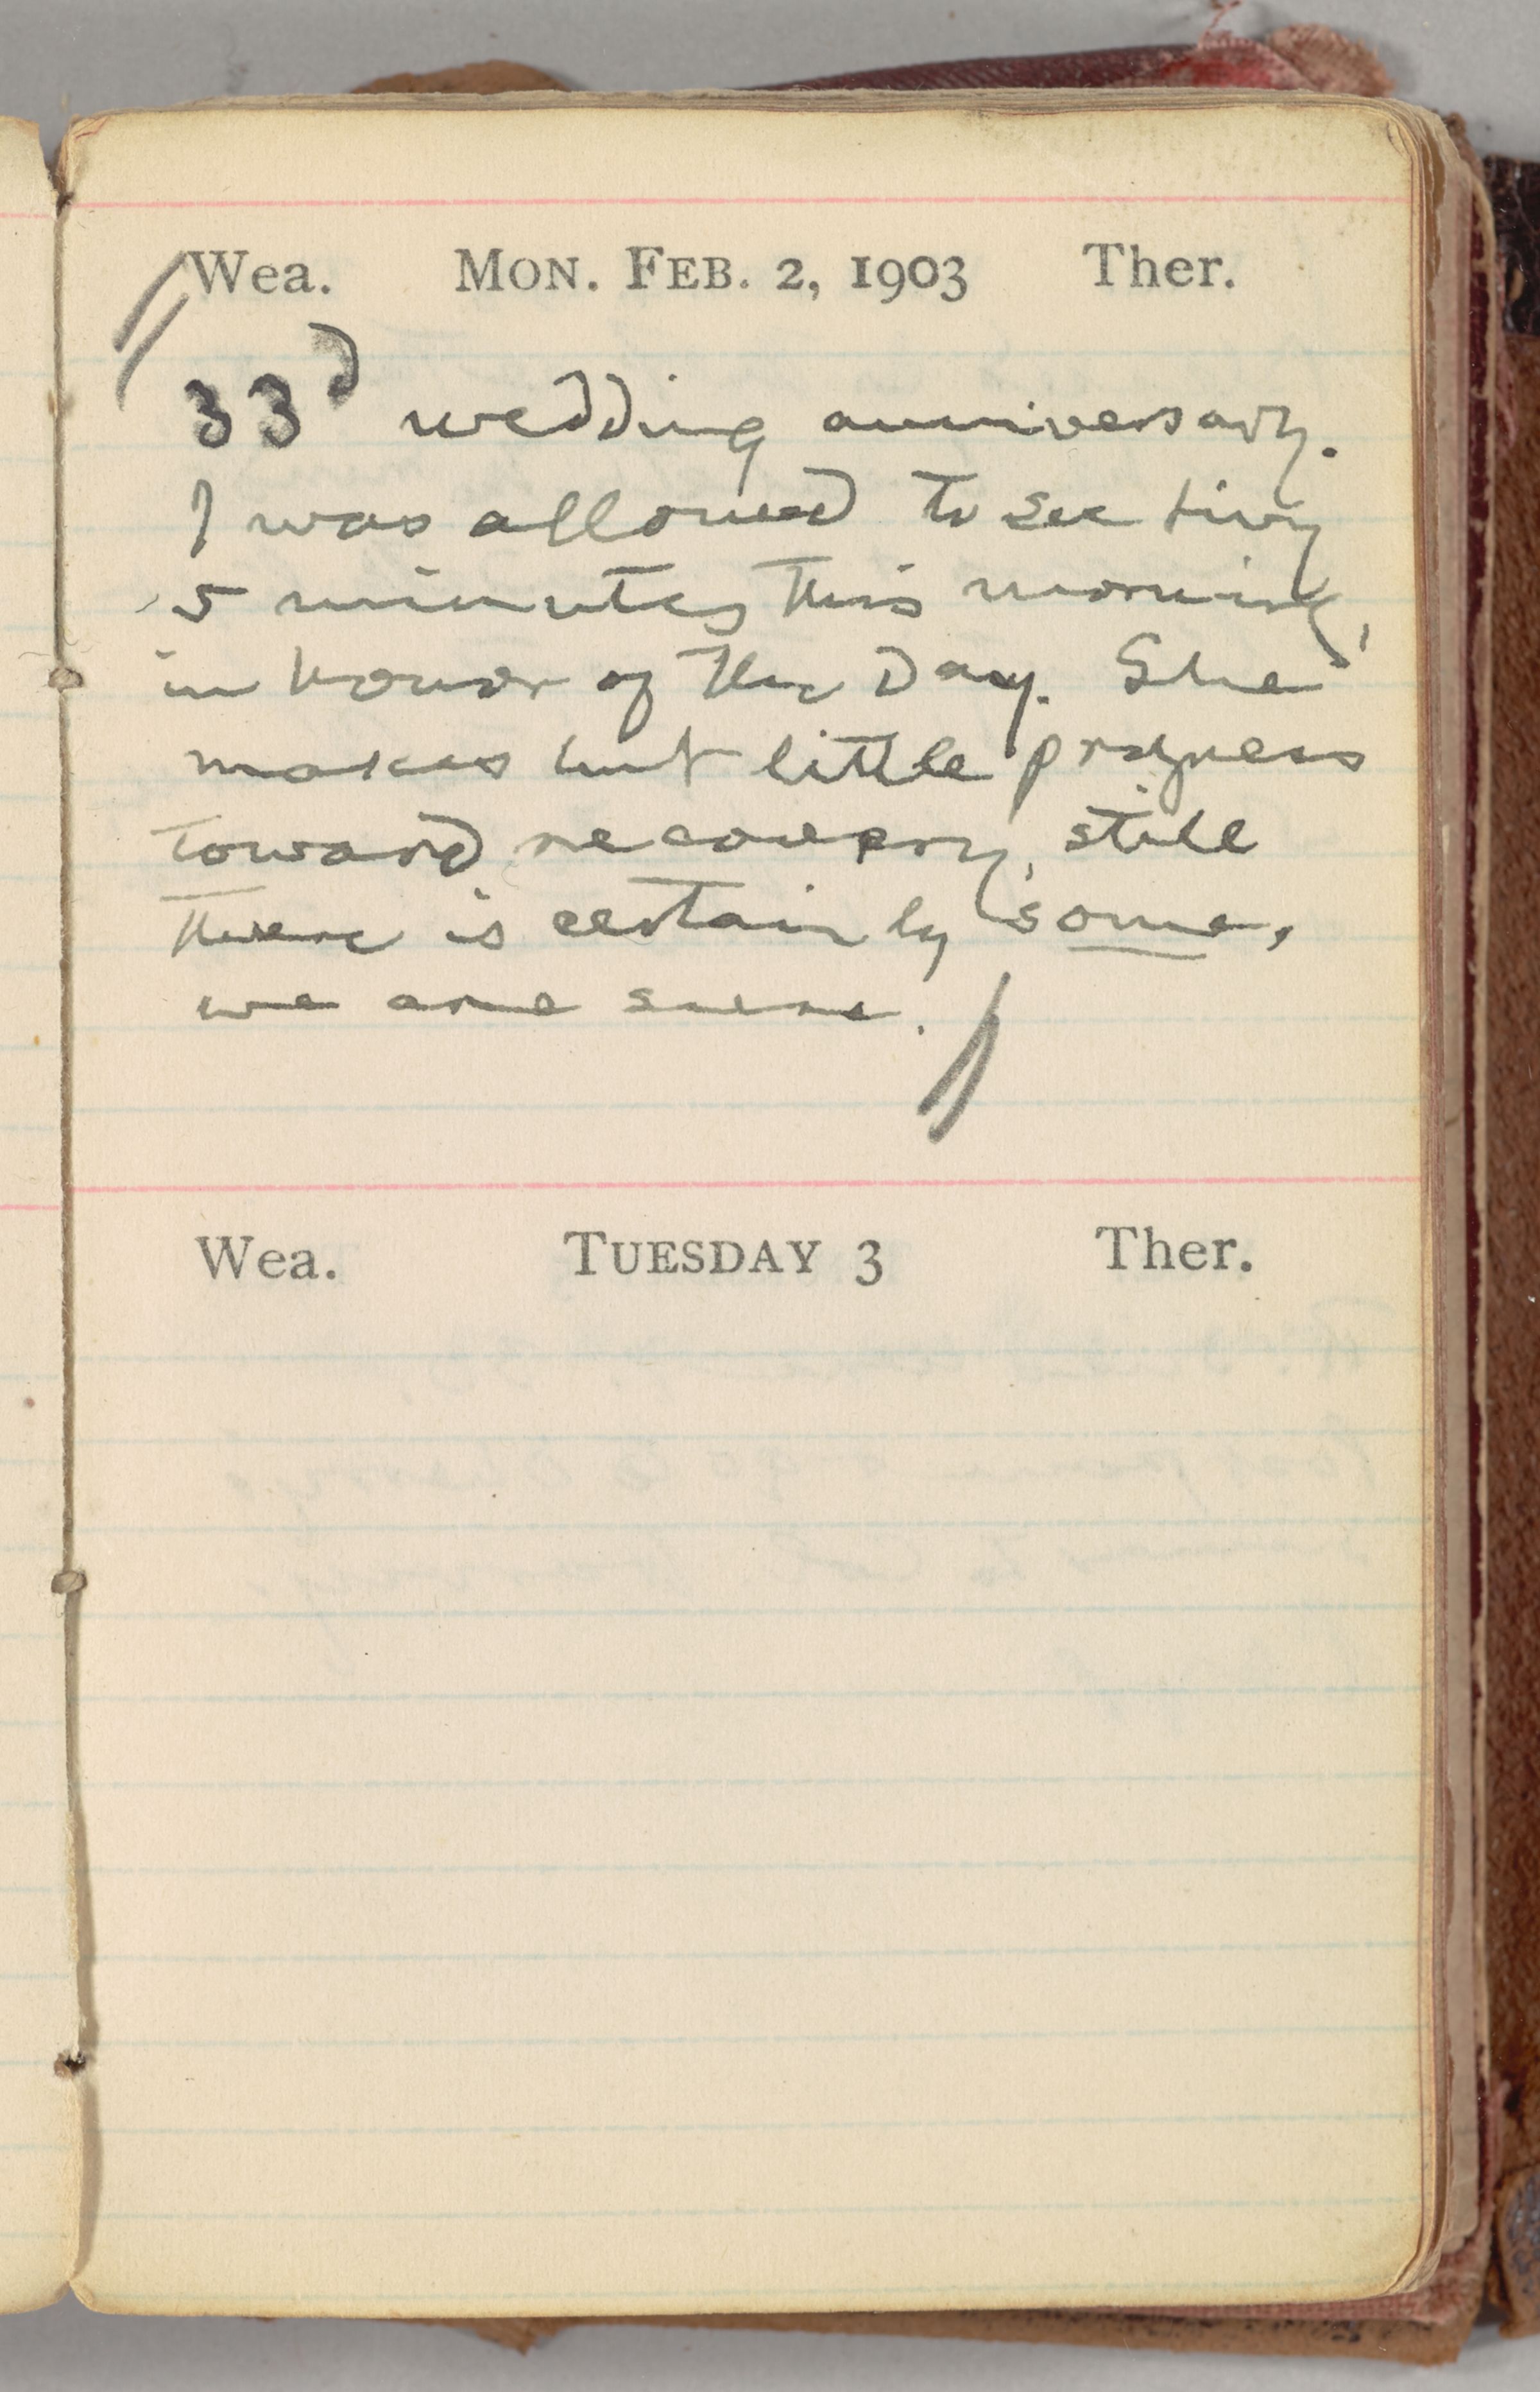 Wea. MON. FEB. 2, 1903 Ther.
33d wedding anniversary.
I was allowed to see Livy
5 minutes this morning,
in honor of the day. She
makes but little progress
toward recovery, still
there is certainly some,
we are sure.
Wea. TUESDAY 3 Ther.